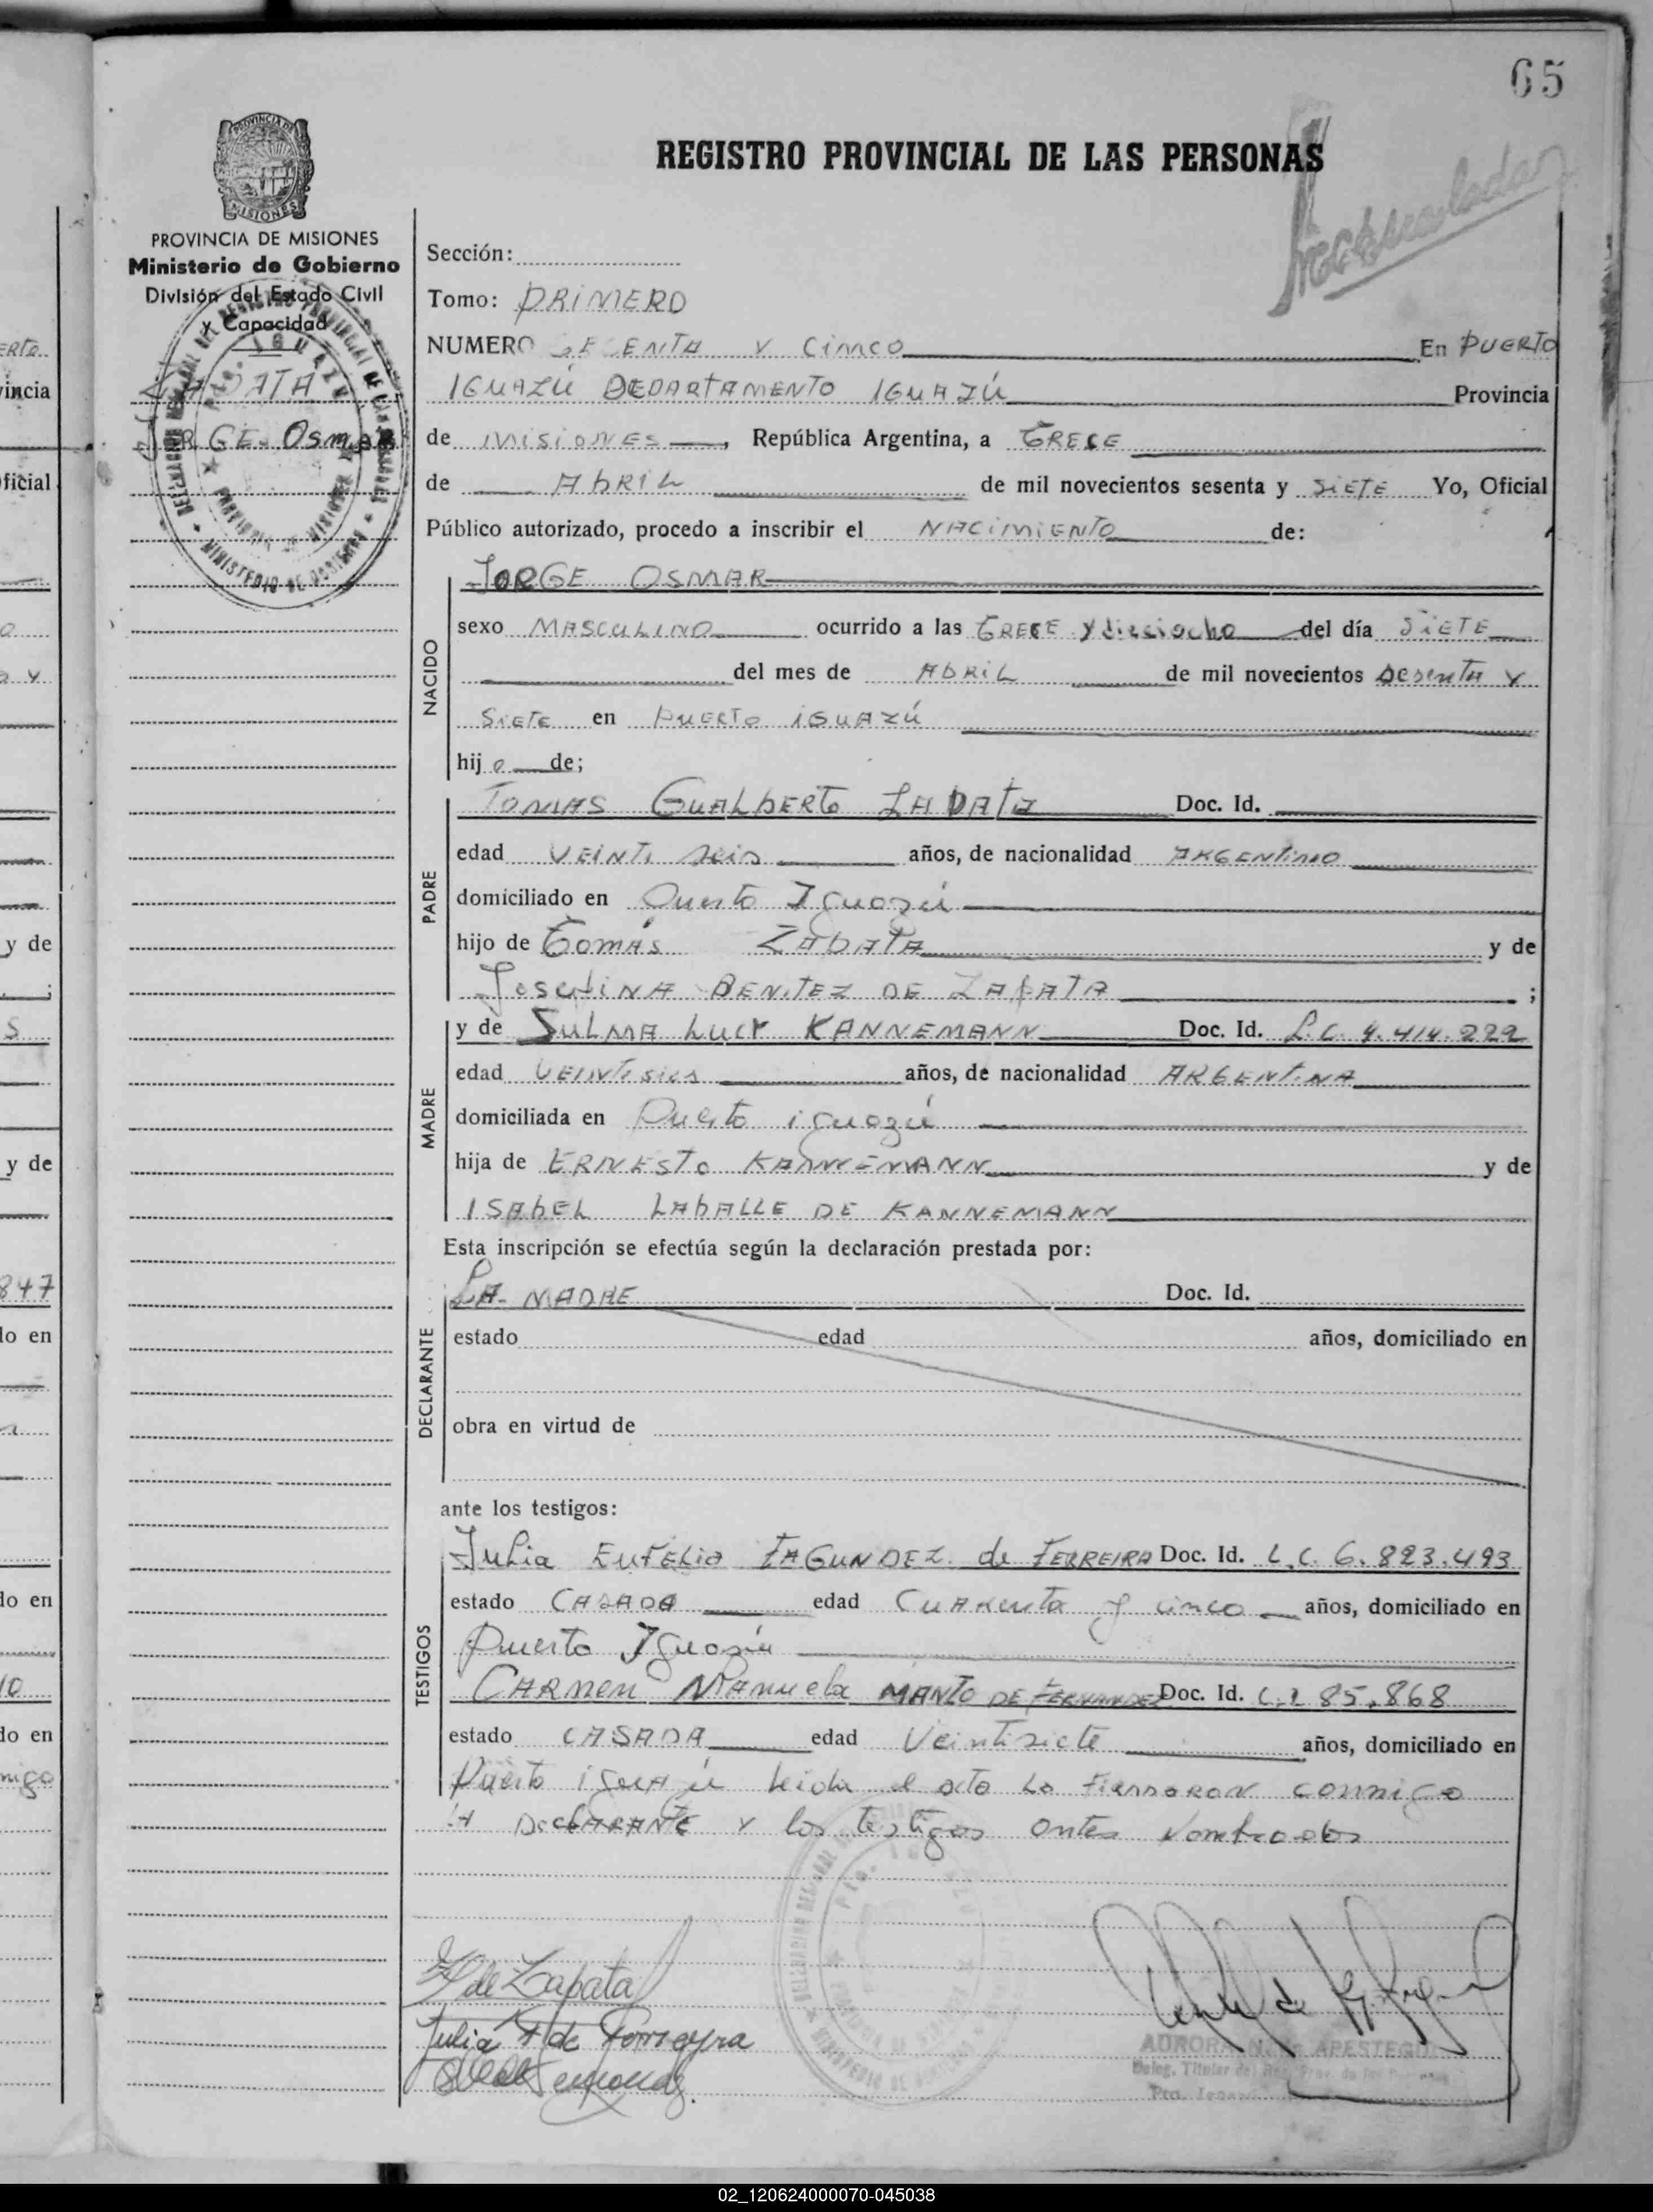 65
REGISTRO PROVINCIAL DE LAS PERSONAS
PROVINCIA DE MISIONES
Ministerio de Gobierno
División del Estado Civil
y Capacidad
ZAPATA
JORGE Osmar
Sección:
Tomo: PRIMERO
NUMERO SESENTA Y CINCO En PUERTO
IGUAZÚ DEPARTAMENTO IGUAZÚ Provincia
de MISIONES, República Argentina, a TRECE
de ABRIL de mil novecientos sesenta y SIETE Yo, Oficial
Público autorizado, procedo a inscribir el NACIMIENTO de:
NACIDO
JORGE OSMAR
sexo MASCULINO ocurrido a las TRECE y dieciocho del día SIETE
del mes de ABRIL de mil novecientos sesenta y
SIETE en PUERTO IGUAZÚ
hijo de;
PADRE
TOMAS GUALBERTO ZAPATA Doc. Id.
edad VEINTI seis años, de nacionalidad ARGENTINO
domiciliado en Puerto Iguazú
hijo de Tomás ZAPATA y de
Josefina BENITEZ DE ZAPATA ;
MADRE
y de SULMA LUCY KANNEMANN Doc. Id. L.C. 4.414.222
edad VEINTISEIS años, de nacionalidad ARGENTINA
domiciliada en Puerto iguazú
hija de ERNESTO KANNEMANN y de
ISABEL LABALLE DE KANNEMANN
Esta inscripción se efectúa según la declaración prestada por:
DECLARANTE
LA MADRE Doc. Id.
estado edad años, domiciliado en
obra en virtud de
ante los testigos:
TESTIGOS
Julia EUFELIA FAGUNDEZ de FERREIRA Doc. Id. L.C. 6.823.493
estado CASADA edad Cuarenta y cinco años, domiciliado en
Puerto Iguazú
CARMEN Manuela MANTO DE FERNANDEZ Doc. Id. C.I 85.868
estado CASADA edad Veintisiete años, domiciliado en
Puerto iguazú leida el acta La FIRMARON conmigo
LA DECLARANTE y los testigos antes Nombrados
de Zapata
Julia F de Ferreyra
AURORA APESTEGUI
Deleg. Titular del Reg. Prov. de las Personas
02_120624000070-045038